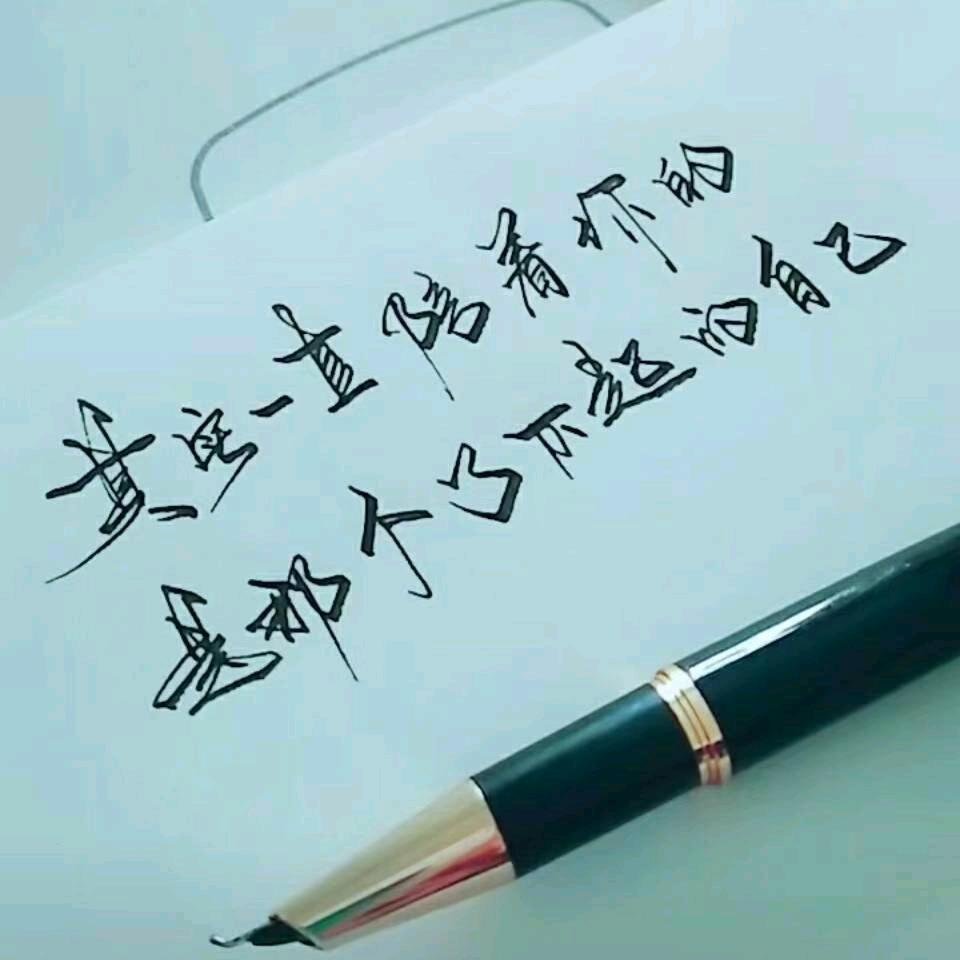 其实一直陪着你的
是那个了不起的自己